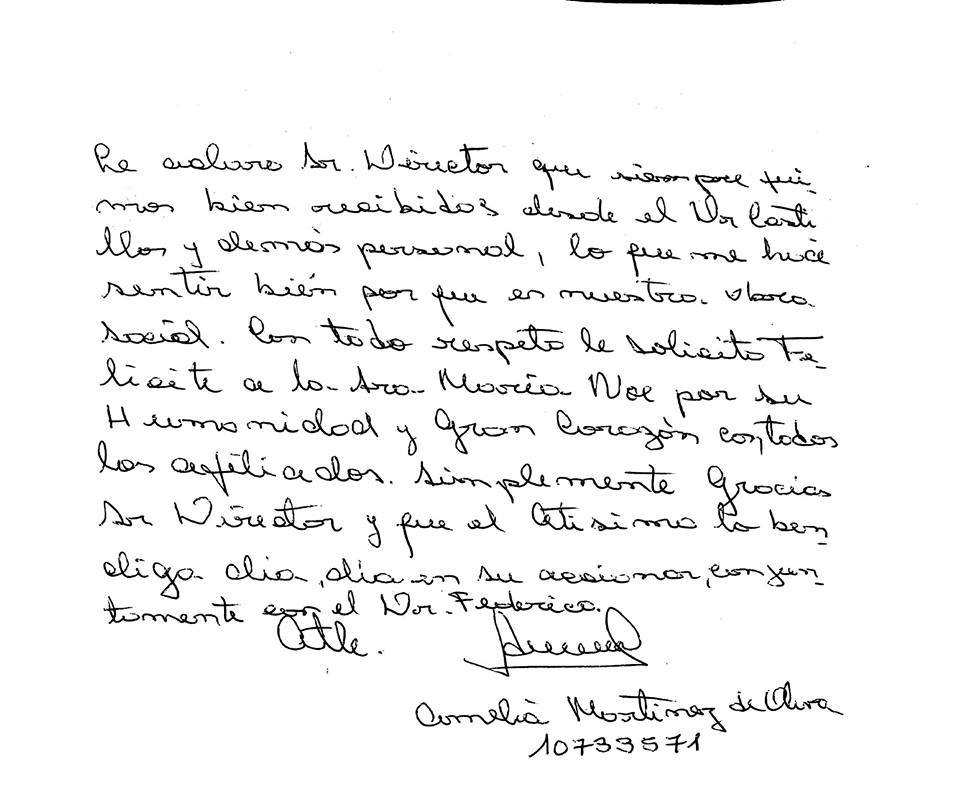 Le aclaro Sr. Director que siempre fui-
mos bien recibidos desde el Dr Casti
llos y demás personal, lo que me hace
sentir bién por que es nuestra obra
social. Con todo respeto le solicito Fe-
licite a la Sra María Noe por su
Humanidad y Gran Corazón con todos
los afiliados. Simplemente Gracias
Sr Director y que el Altisimo lo ben-
diga dia, dia en su accionar, conjun-
tamente con el Dr. Federico.
Atte.
Cornelia Martinez de Oliva
10733571